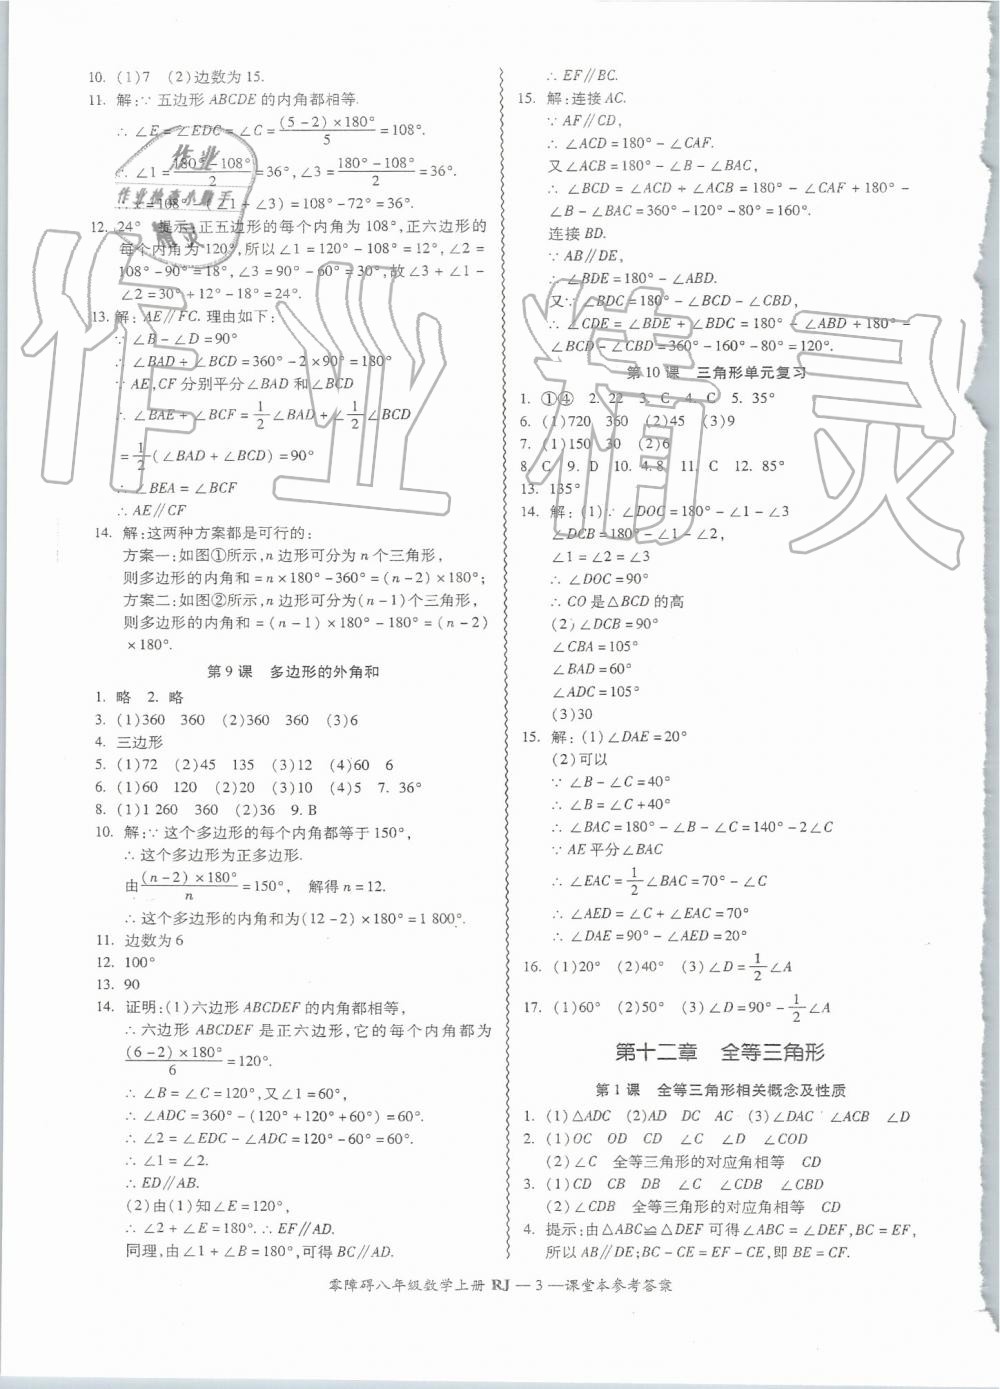 10. (1)7 (2)边数为 15.
11. 解:∵五边形 ABCDE 的内角都相等.
∴∠E=∠EDC=∠C=\frac{(5-2)×180°}{5}=108°.
∴∠1=\frac{180°-108°}{2}=36°,∠3=\frac{180°-108°}{2}=36°.
∴x=108°-(∠1+∠3)=108°-72°=36°.
12. 24° 提示:正五边形的每个内角为 108°,正六边形的
每个内角为 120°,所以∠1=120°-108°=12°,∠2=
108°-90°=18°,∠3=90°-60°=30°,故∠3+∠1-
∠2=30°+12°-18°=24°.
13. 解:AE∥FC.理由如下:
∵∠B-∠D=90°
∴∠BAD+∠BCD=360°-2×90°=180°
∵AE,CF 分别平分∠BAD 和∠BCD
∴∠BAE+∠BCF=\frac{1}{2}∠BAD+\frac{1}{2}∠BCD
=\frac{1}{2}(∠BAD+∠BCD)=90°
∴∠BEA=∠BCF
∴AE∥CF
14. 解:这两种方案都是可行的:
方案一:如图①所示,n 边形可分为 n 个三角形,
则多边形的内角和=n×180°-360°=(n-2)×180°;
方案二:如图②所示,n 边形可分为(n-1)个三角形,
则多边形的内角和=(n-1)×180°-180°=(n-2)
×180°.
第 9 课 多边形的外角和
1. 略 2. 略
3. (1)360 360 (2)360 360 (3)6
4. 三边形
5. (1)72 (2)45 135 (3)12 (4)60 6
6. (1)60 120 (2)20 (3)10 (4)5 7. 36°
8. (1)1 260 360 (2)36 9. B
10. 解:∵这个多边形的每个内角都等于 150°,
∴这个多边形为正多边形.
由\frac{(n-2)×180°}{n}=150°, 解得 n=12.
∴这个多边形的内角和为(12-2)×180°=1 800°.
11. 边数为 6
12. 100°
13. 90
14. 证明:(1)六边形 ABCDEF 的内角都相等,
∴六边形 ABCDEF 是正六边形,它的每个内角都为
\frac{(6-2)×180°}{6}=120°.
∴∠B=∠C=120°,又∠1=60°,
∴∠ADC=360°-(120°+120°+60°)=60°.
∴∠2=∠EDC-∠ADC=120°-60°=60°.
∴∠1=∠2.
∴ED∥AB.
(2)由(1)知∠E=120°,
∴∠2+∠E=180°.∴EF∥AD.
同理,由∠1+∠B=180°,可得 BC∥AD.
∴EF∥BC.
15. 解:连接 AC.
∵AF∥CD,
∴∠ACD=180°-∠CAF.
又∠ACB=180°-∠B-∠BAC,
∴∠BCD=∠ACD+∠ACB=180°-∠CAF+180°-
∠B-∠BAC=360°-120°-80°=160°.
连接 BD.
∵AB∥DE,
∴∠BDE=180°-∠ABD.
又∵∠BDC=180°-∠BCD-∠CBD,
∴∠CDE=∠BDE+∠BDC=180°-∠ABD+180°=
∠BCD-∠CBD=360°-160°-80°=120°.
第 10 课 三角形单元复习
1. ①④ 2. 22 3. C 4. C 5. 35°
6. (1)720 360 (2)45 (3)9
7. (1)150 30 (2)6
8. C 9. D 10. 4.8 11. C 12. 85°
13. 135°
14. 解:(1)∵∠DOC=180°-∠1-∠3
∠DCB=180°-∠1-∠2,
∠1=∠2=∠3
∴∠DOC=90°
∴CO 是△BCD 的高
(2)∠DCB=90°
∠CBA=105°
∠BAD=60°
∠ADC=105°
(3)30
15. 解:(1)∠DAE=20°
(2)可以
∵∠B-∠C=40°
∴∠B=∠C+40°
∴∠BAC=180°-∠B-∠C=140°-2∠C
∵AE 平分∠BAC
∴∠EAC=\frac{1}{2}∠BAC=70°-∠C
∴∠AED=∠C+∠EAC=70°
∴∠DAE=90°-∠AED=20°
16. (1)20° (2)40° (3)∠D=\frac{1}{2}∠A
17. (1)60° (2)50° (3)∠D=90°-\frac{1}{2}∠A
第十二章 全等三角形
第 1 课 全等三角形相关概念及性质
1. (1)△ADC (2)AD DC AC (3)∠DAC ∠ACB ∠D
2. (1)OC OD CD ∠C ∠D ∠COD
(2)∠C 全等三角形的对应角相等 CD
3. (1)CD CB DB ∠C ∠CDB ∠CBD
(2)∠CDB 全等三角形的对应角相等 CD
4. 提示:由△ABC≌△DEF 可得∠ABC=∠DEF,BC=EF,
所以 AB∥DE;BC-CE=EF-CE,即 BE=CF.
零障碍八年级数学上册 RJ—3—课堂本参考答案
作业精灵